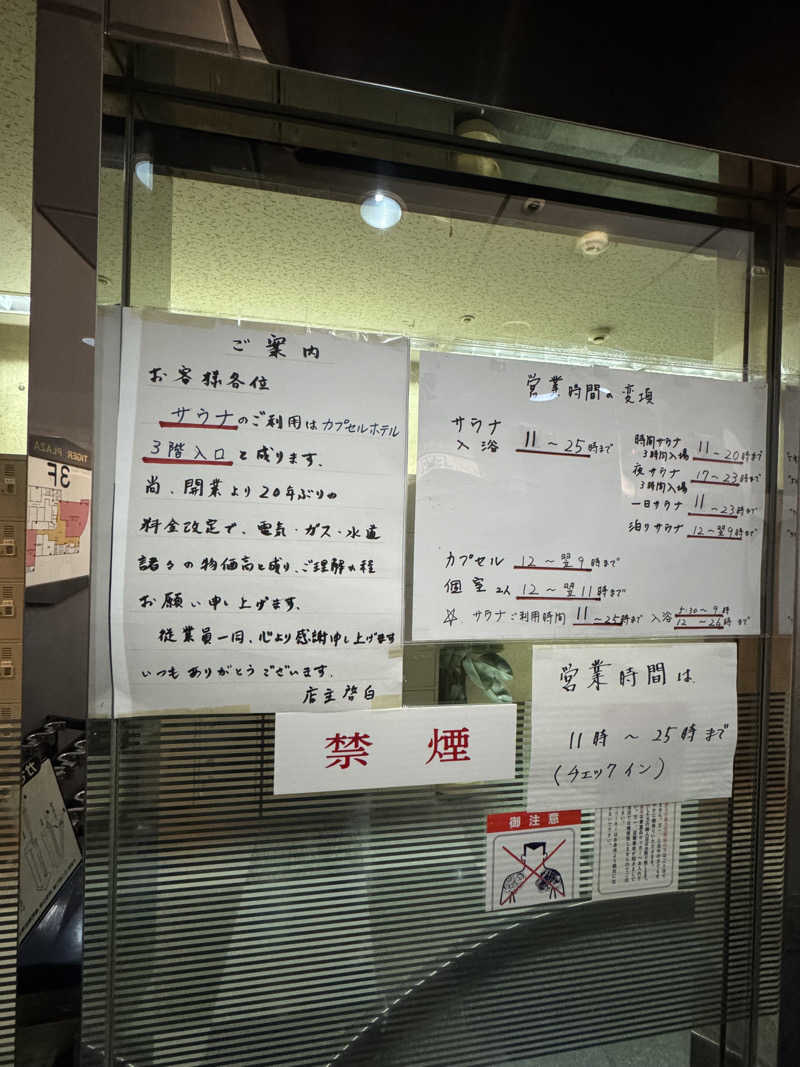 ご案内
お客様各位
サウナのご利用はカプセルホテル
3階入口と成ります.
尚、開業より20年ぶりの
料金改定で、電気・ガス・水道
諸々の物価高と成り、ご理解の程
お願い申し上げます.
従業員一同、心より感謝申し上げます
いつもありがとうございます.
店主啓白
営業時間の変項
サウナ
入浴 11～25時まで
時間サウナ
3時間入場 11～20時まで
夜サウナ
3時間入場 17～23時まで
一日サウナ 11～23時まで
泊りサウナ 12～翌9時まで
カプセル 12～翌9時まで
個室2人 12～翌11時まで
☆.サウナご利用時間 11～25時まで 入浴 5:30～9時
12～26時まで
営業時間は
11時～25時まで
(チェックイン)
禁煙
御注意
TIGER PLAZA
3F